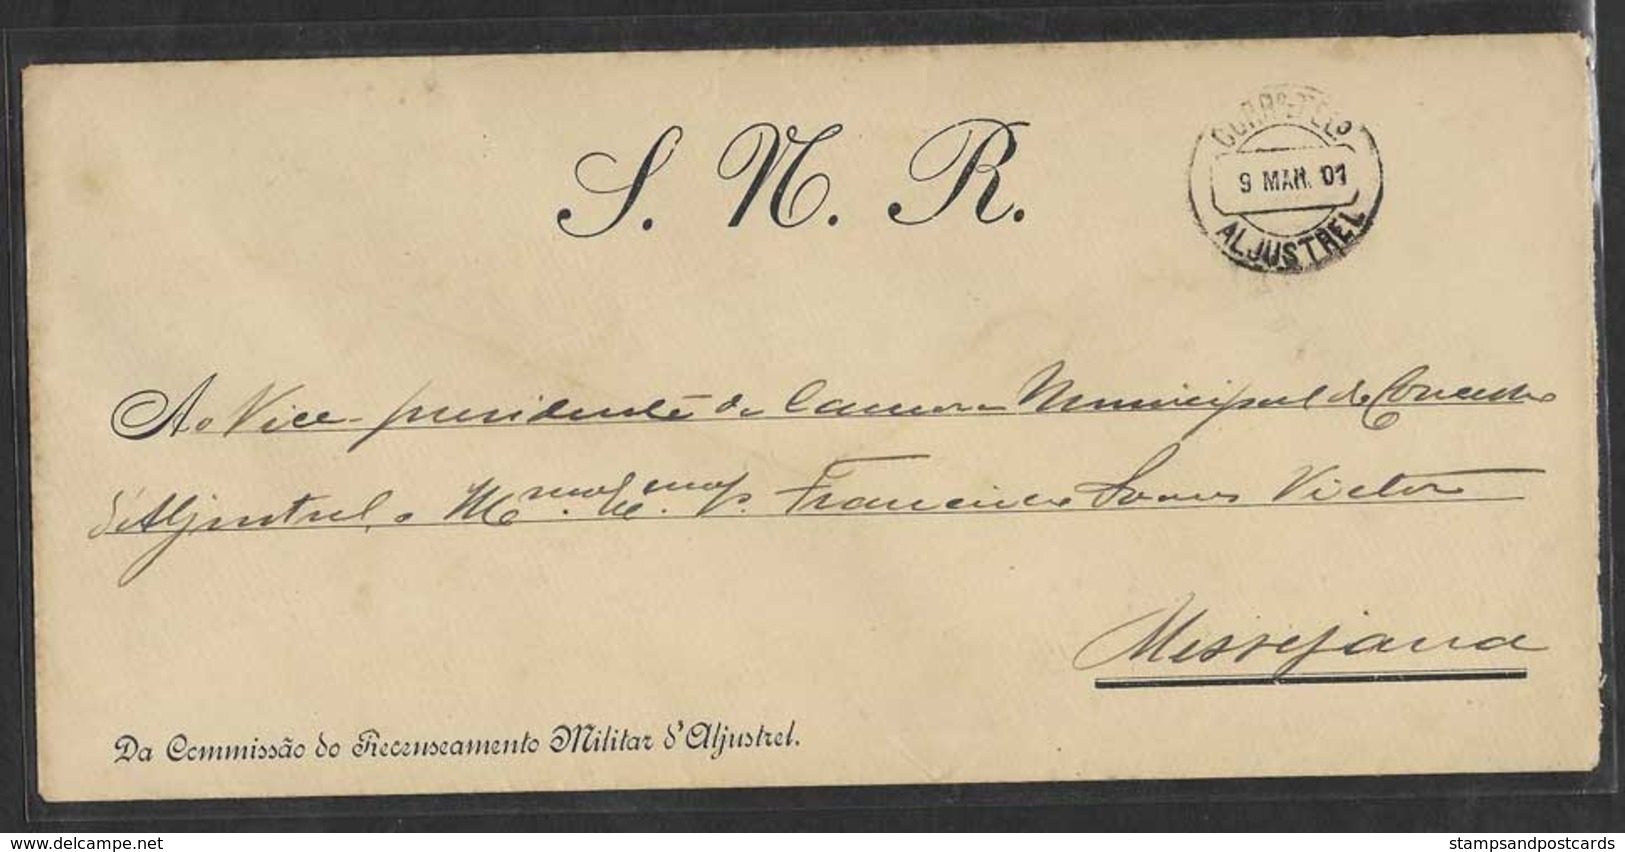 S. N. R.
CORRO E TELO
9 MAR. 01
ALJUSTREL
Ao Vice-presidente da Camara Municipal do Concelho
d'Aljustrel, o Francisco Soares Victor
Messejana
Da Commissão do Recenseamento Militar d'Aljustrel.
delcampe.net
stampsandpostcards